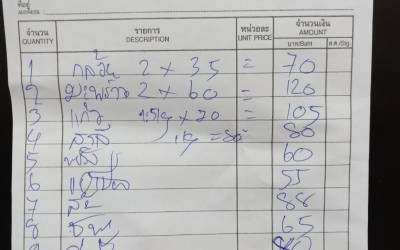 ที่อยู่
ADDRESS
จำนวน รายการ หน่วยละ จำนวนเงิน
QUANTITY DESCRIPTION UNIT PRICE AMOUNT
บาท/Baht ส.ต./Stg.
1 กล้วย 2 x 35 = 70
2 มะพร้าว 2 x 60 = 120
3 แก้ว 1.5 kg x 70 = 105
4 สาลี่ 1 kg = 80 80
5 60
6 55
7 ส้ม 88
8 ชมพู่ 65